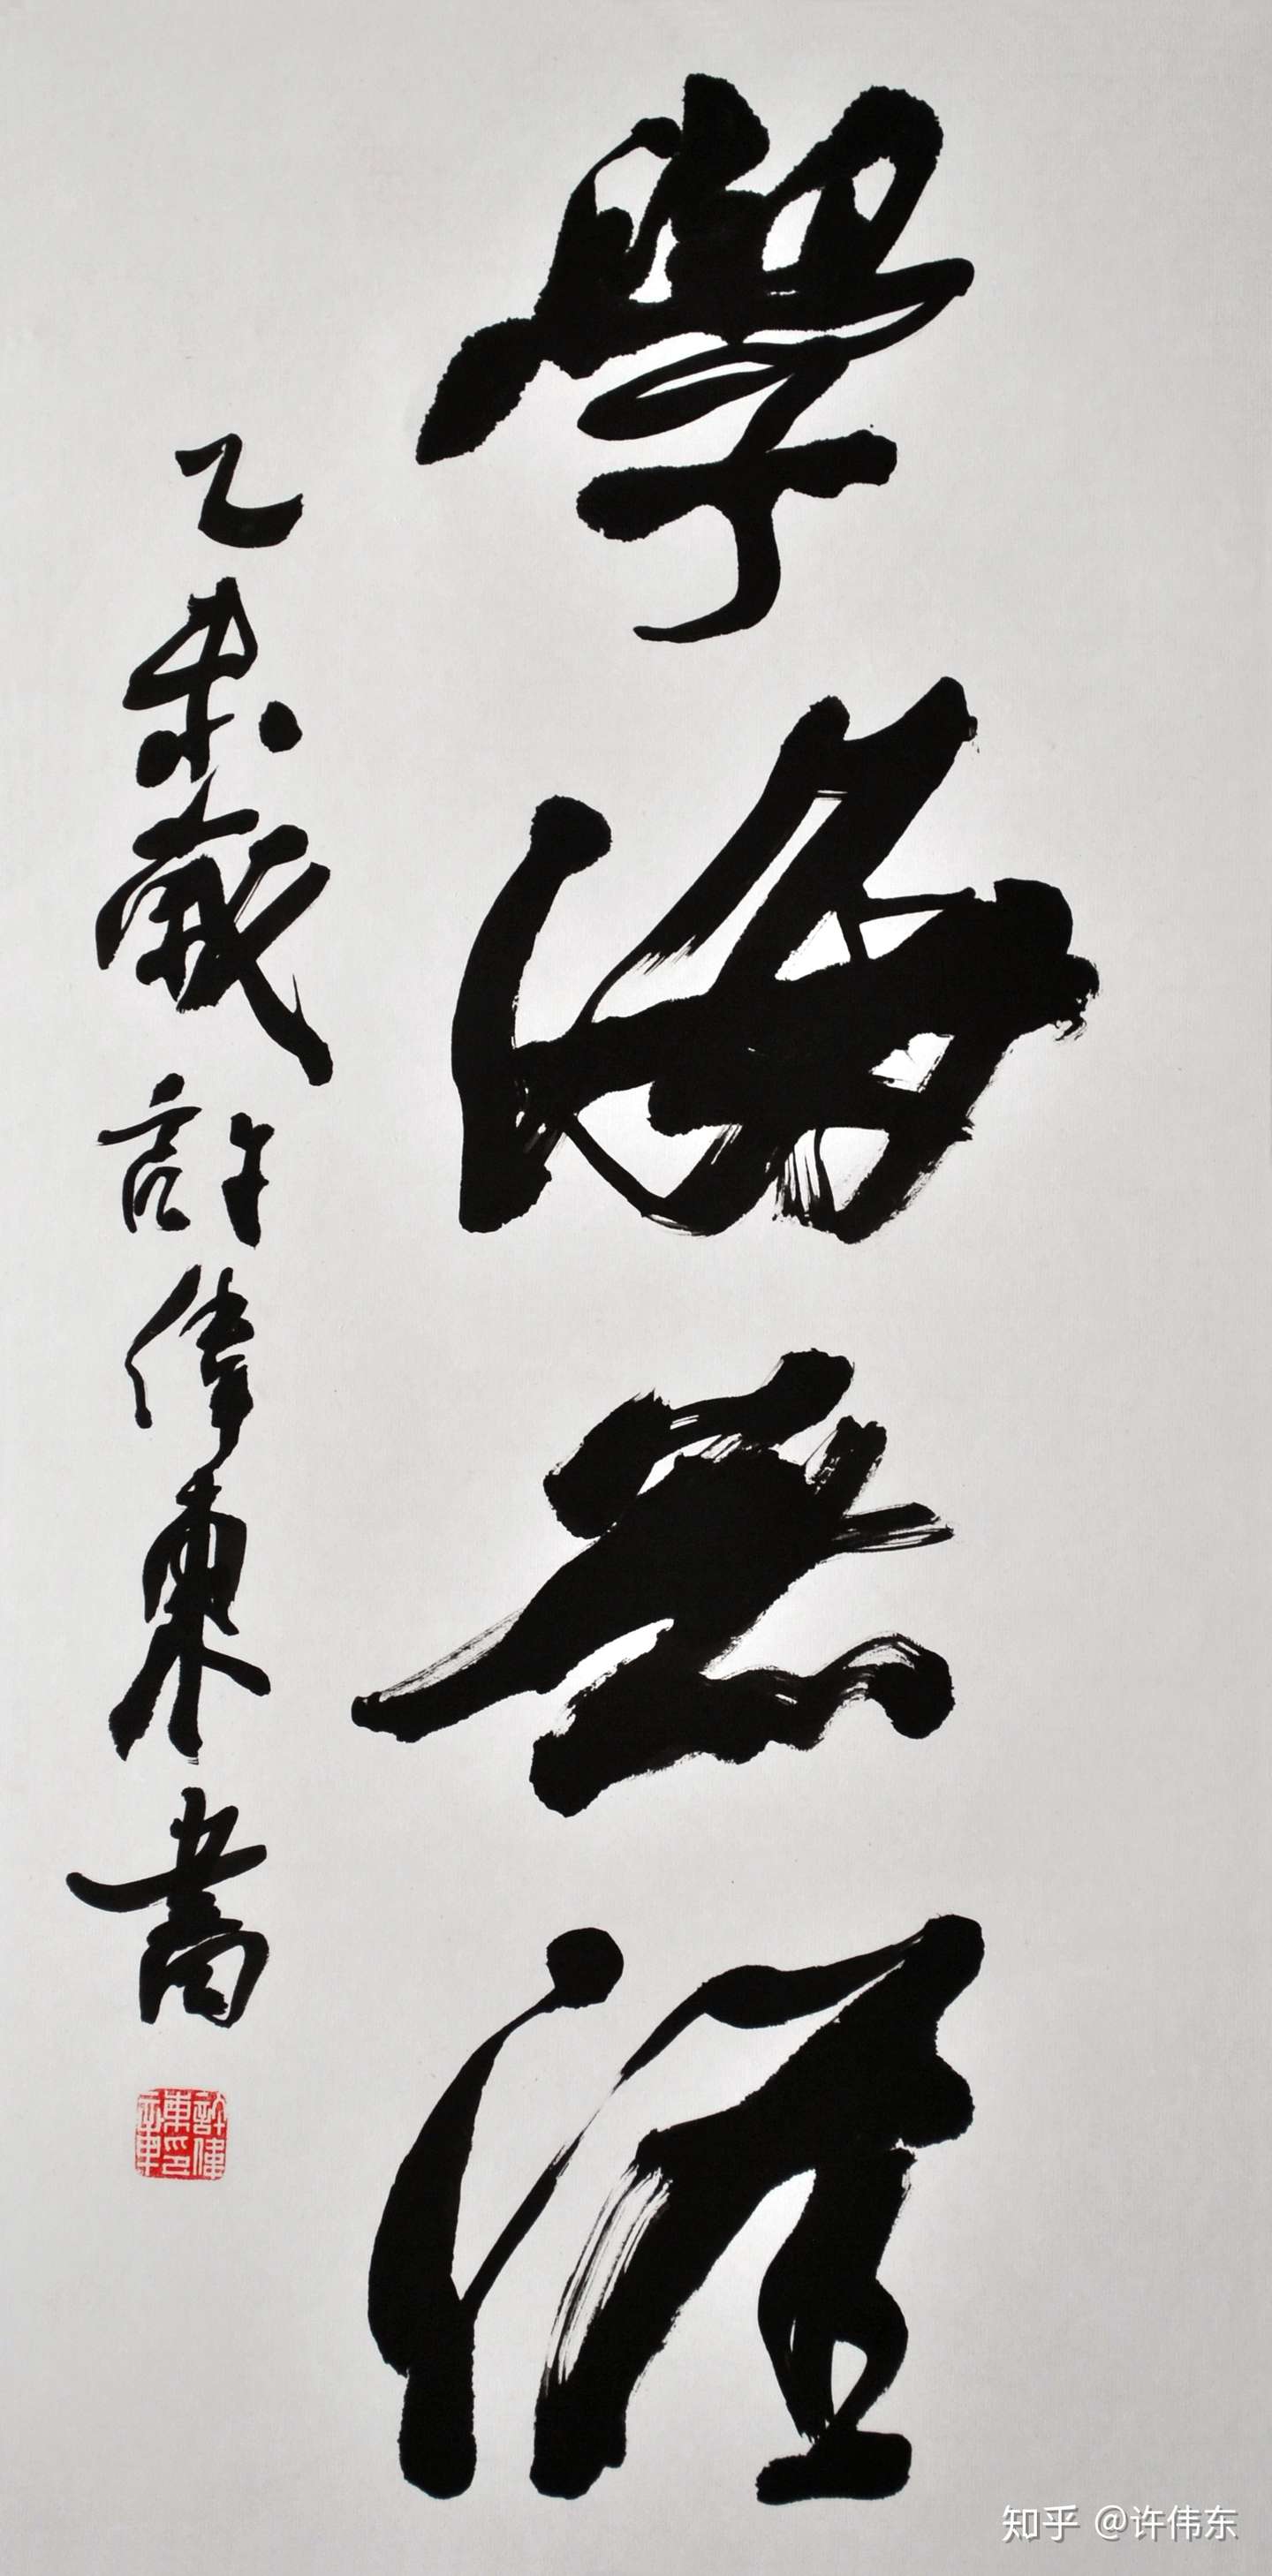 學海無涯
乙未歲許偉東書
許偉東印
知乎 @许伟东